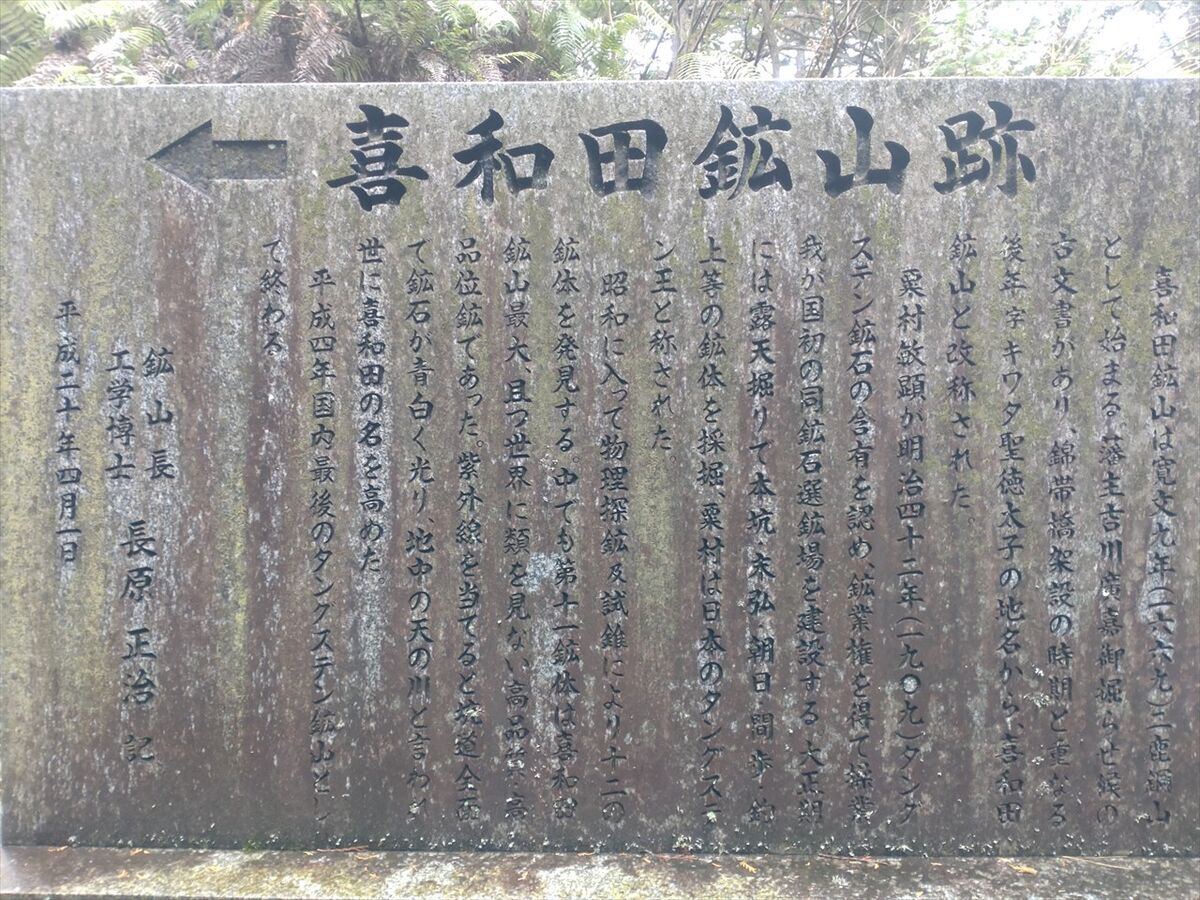 喜和田鉱山跡
喜和田鉱山は寛文九年(一六六九)二鹿銅山
として始まる。藩主吉川廣嘉御掘らせ候の
古文書があり、錦帯橋架設の時期と重なる
後年字キワダ聖徳太子の地名から、喜和田
鉱山と改称された。
粟村敏顕が明治四十二年(一九〇九)タング
ステン鉱石の含有を認め、鉱業権を得て採業
我が国初の同鉱石選鉱場を建設する。大正期
には露天掘りで本坑・末弘・朝日・間歩・釣
上等の鉱体を採掘、粟村は日本のタングステ
ン王と称された。
昭和に入って物理探鉱及試錐により十二の
鉱体を発見する。中でも第十一鉱体は喜和田
鉱山最大、且つ世界に類を見ない高品質・高
品位鉱であった。紫外線を当てると坑道全面
て鉱石が青白く光り、地中の天の川と言われ
世に喜和田の名を高めた。
平成四年国内最後のタングステン鉱山とし
て終わる
鉱山長
工学博士 長原正治 記
平成二十年四月一日